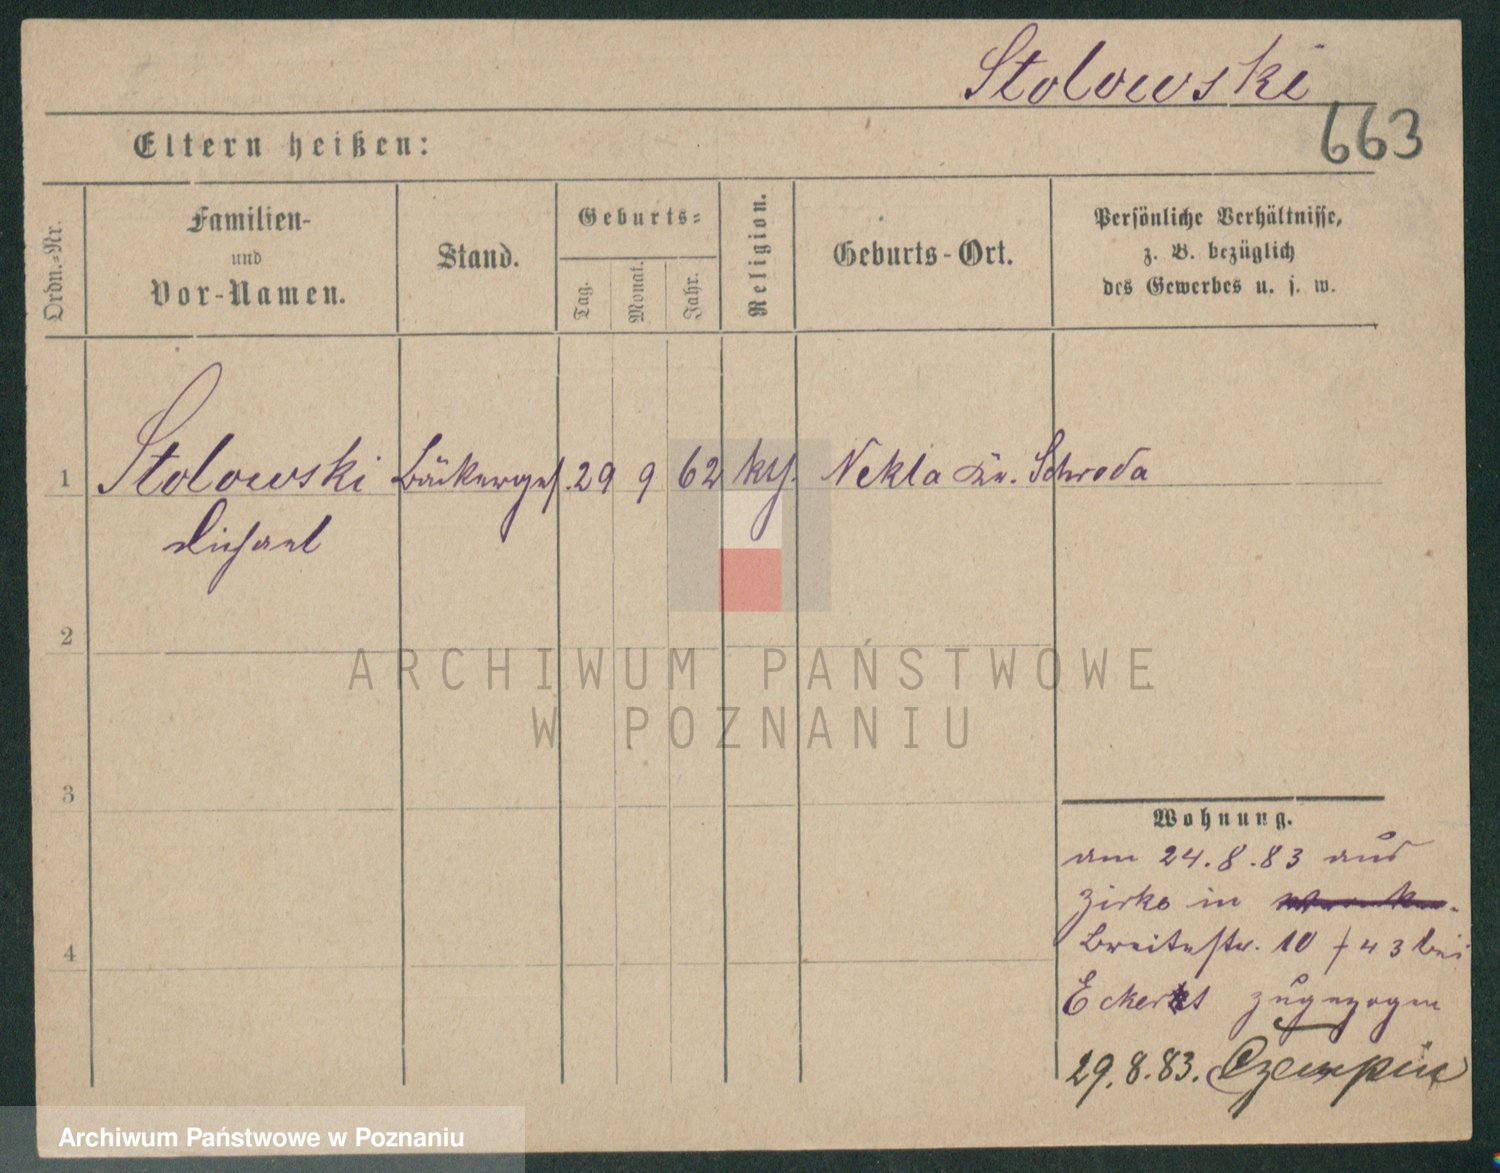 Stolowski
663
Eltern heißen:
Ordn.=Nr.
Familien-
und
Vor-Namen.
Stand.
Geburts=
Tag.
Monat.
Jahr.
Religion.
Geburts-Ort.
Persönliche Verhältnisse,
z. B. bezüglich
des Gewerbes u. s. w.
1 Stolowski Bäckerges. 29 9 62 Nekla Kr. Schroda
Michael
2
3
4
Wohnung.
am 24.8.83 aus
Zirke in
Breitestr. 10 / 43 bei
Eckert zugezogen
29.8.83. Czempin
ARCHIWUM PAŃSTWOWE
W POZNANIU
Archiwum Państwowe w Poznaniu